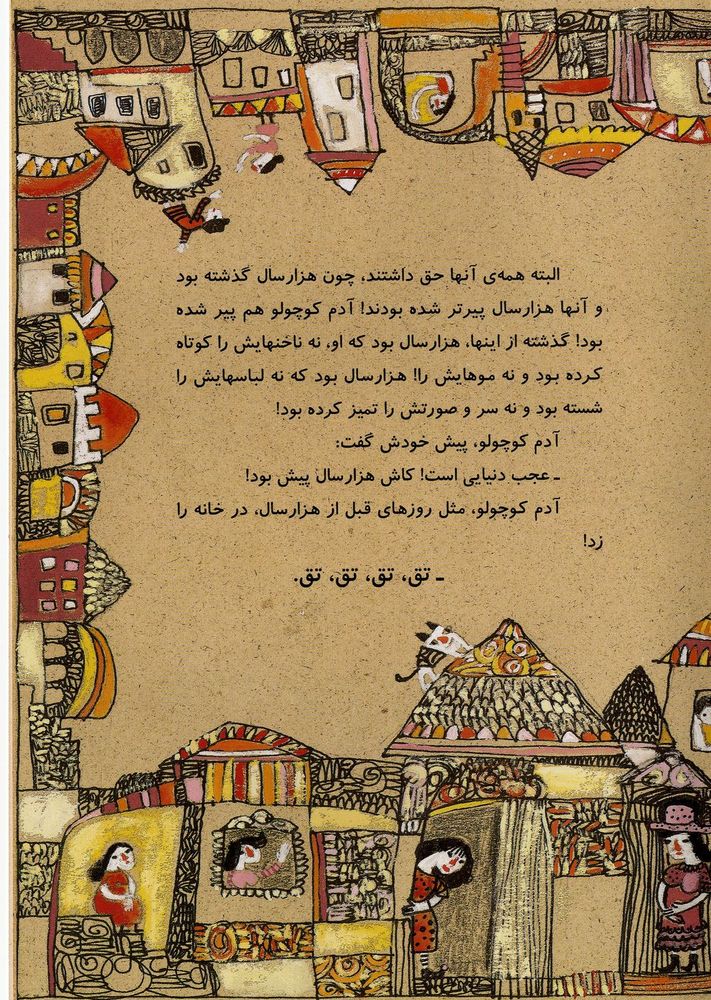 البته همه‌ی آنها حق داشتند، چون هزارسال گذشته بود
و آنها هزارسال پیرتر شده بودند! آدم کوچولو هم پیر شده
بود! گذشته از اینها، هزارسال بود که او، نه ناخنهایش را کوتاه
کرده بود و نه موهایش را! هزارسال بود که نه لباسهایش را
شسته بود و نه سر و صورتش را تمیز کرده بود!
آدم کوچولو، پیش خودش گفت:
ـ عجب دنیایی است! کاش هزارسال پیش بود!
آدم کوچولو، مثل روزهای قبل از هزارسال، در خانه را
زد!
ـ تق، تق، تق، تق.